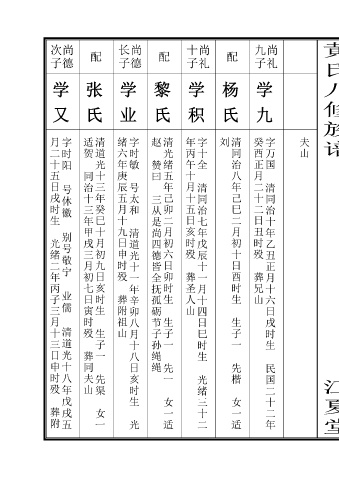 黄氏八修族谱
江夏堂
夫山
尚礼九子
学九
字万国 清同治十年乙丑正月十六日戌时生 民国二十二年
癸酉正月二十二日丑时殁 葬兄山
配
杨氏
清同治八年己巳二月初十日酉时生 生子一 先楷 女一适
刘
尚礼十子
学积
字十全 清同治七年戊辰十一月十四日巳时生 光绪三十二
年丙午十月十五日亥时殁 葬圣人山
配
黎氏
清光绪五年己卯二月初六日卯时生 生子一 先一 女一适
赵 赞曰 三从是尚四德皆全抚孤砺节子孙绳绳
尚德长子
学业
字时敏 号太和 清道光十一年辛卯八月十八日亥时生 光
绪六年庚辰五月十九日申时殁 葬附祖山
配
张氏
清道光十三年癸巳十月初九日亥时生 生子一 先渠 女一
适贺 同治十三年甲戌三月初七日寅时殁 葬同夫山
尚德次子
学又
字时阳 号休徽 别号敬宁 业儒 清道光十八年戊戌五
月二十五日戌时生 光绪二年丙子三月十三日申时殁 葬附